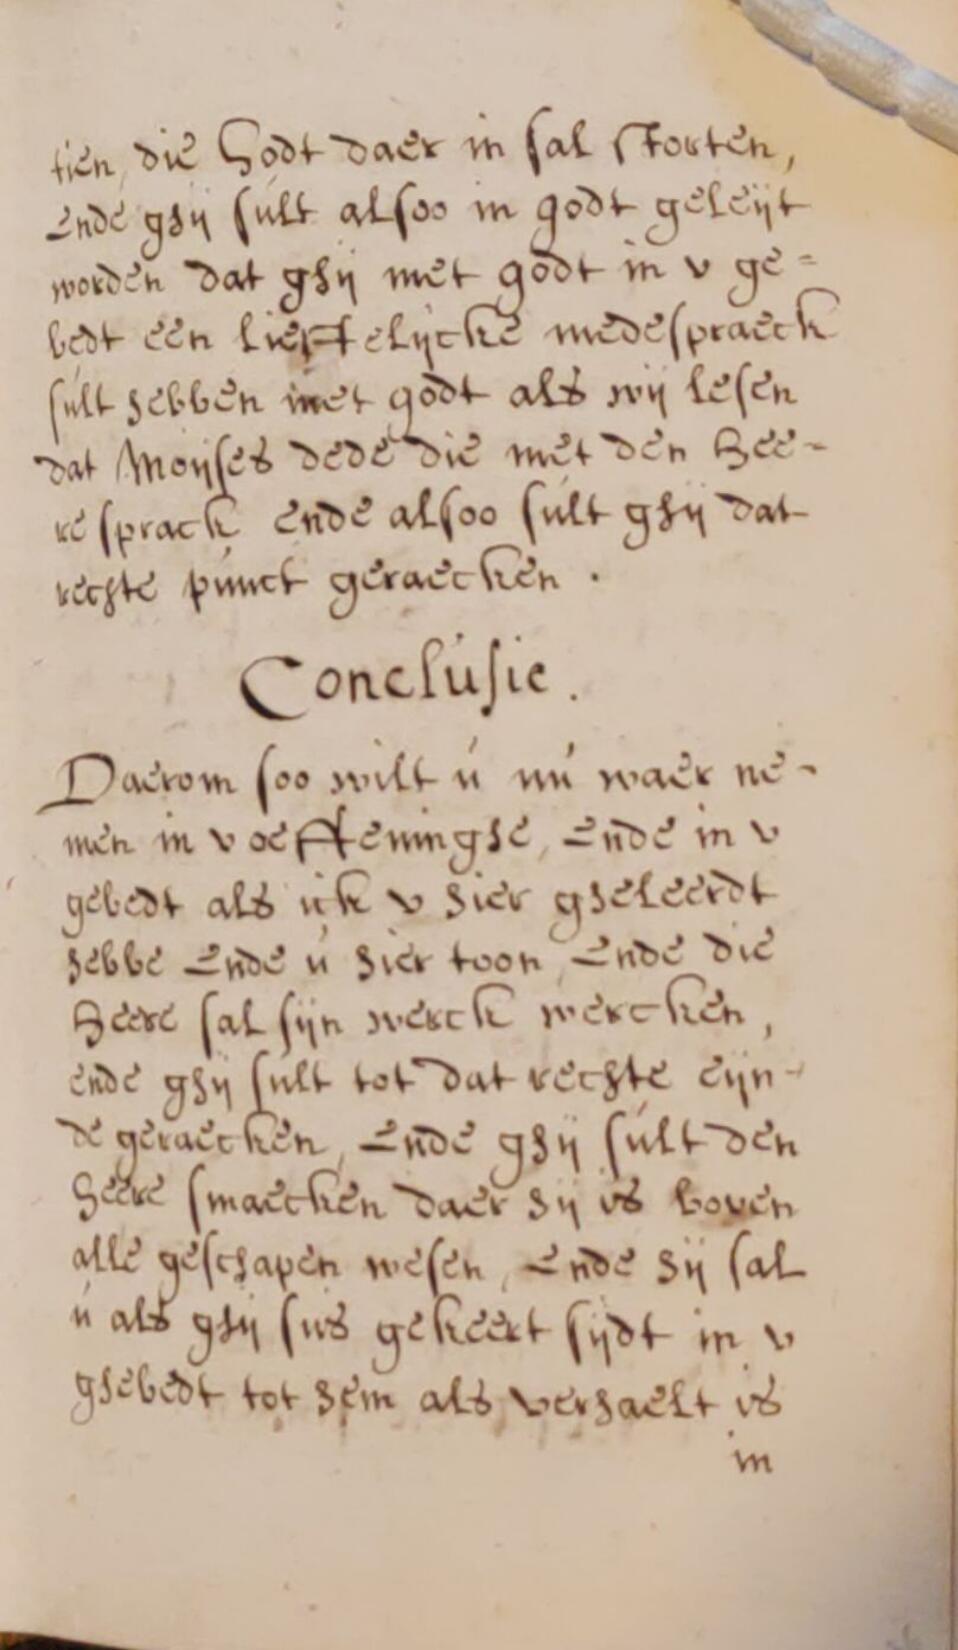 tien, die Godt daer in sal storten,
Ende ghij sult alsoo in godt geleijt
worden dat ghij met godt in v ge=
bedt een lieffelijcke medespraeck
sult hebben met godt als wij lesen
dat Moijses dede die met den Hee-
re sprack Ende alsoo sult ghij dat
rechte punct geraecken .
Conclusie .
Daerom soo wilt u nu waer ne-
men in v oeffeninghe, Ende in v
gebedt als ick v hier gheleerdt
hebbe Ende u hier toon, Ende die
Heere sal sijn werck wercken,
ende ghij sult tot dat rechte eijn-
de geraecken, Ende ghij sult den
Heere smaecken daer hij is boven
alle geschapen wesen, Ende hij sal
u als ghij sus gekeert sijdt in v
ghebedt tot hem als verhaelt is
in